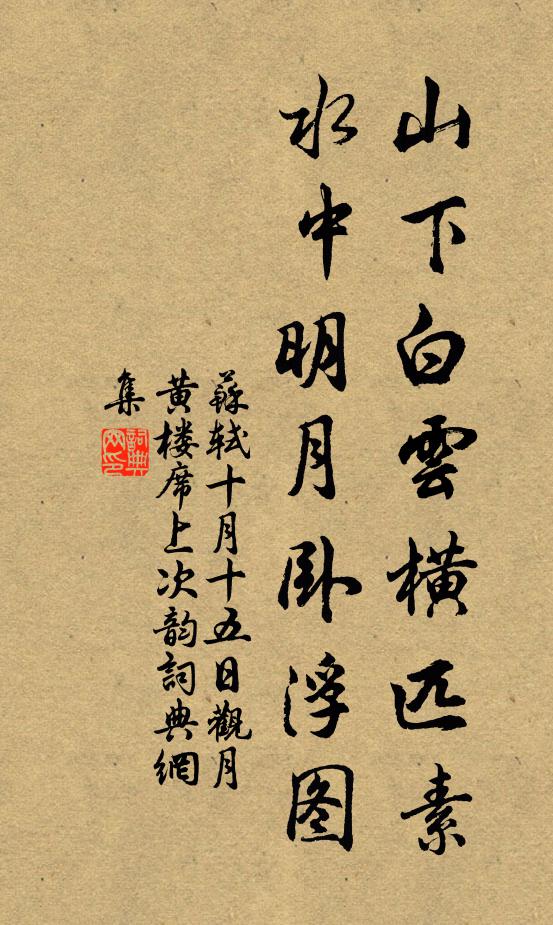 山下白雲橫匹素
水中明月卧浮图
蘇軾十月十五日觀月
黄楼席上次韵詞典網
集
詞典网印